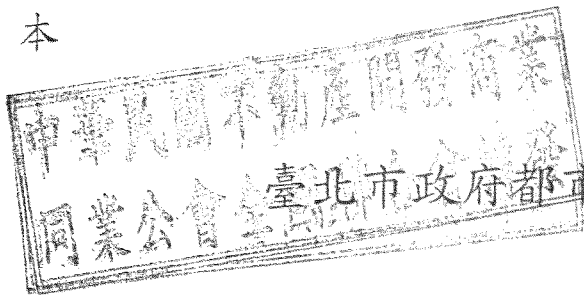 本
中華民國不動產開發商業
同業公會全
臺北市政府都